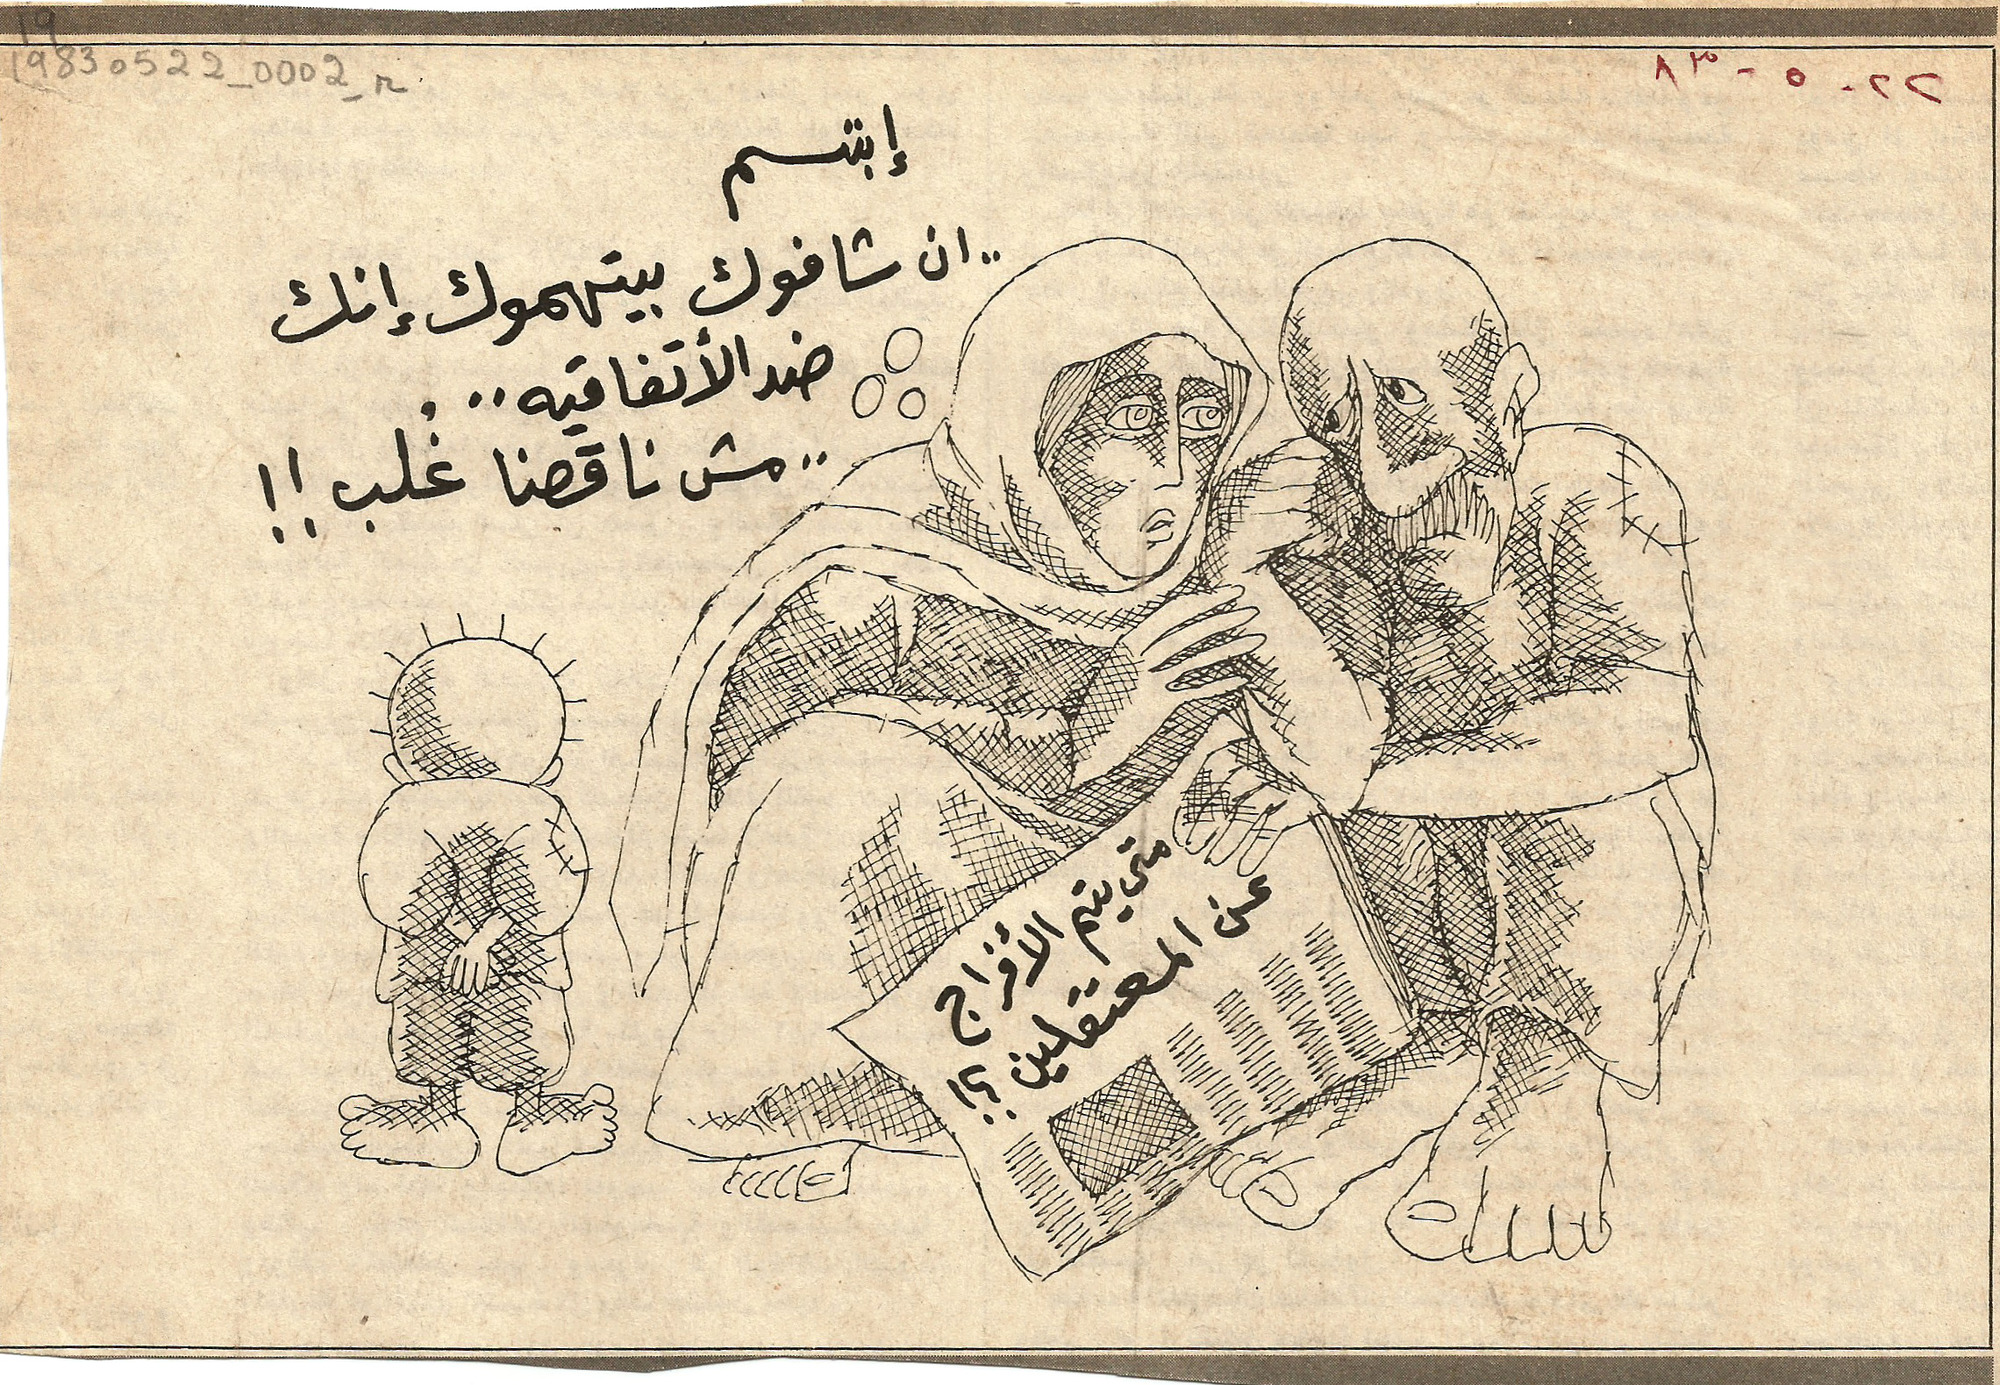 19
19830522_0002_r
٢٢-٥-٨٣
إبتسم
..ان شافوك بيتهموك إنك
ضد الأتفاقيه..
..مش ناقصنا غُلب!!
متى يتم الأفراج
عن المعتقلين ؟!